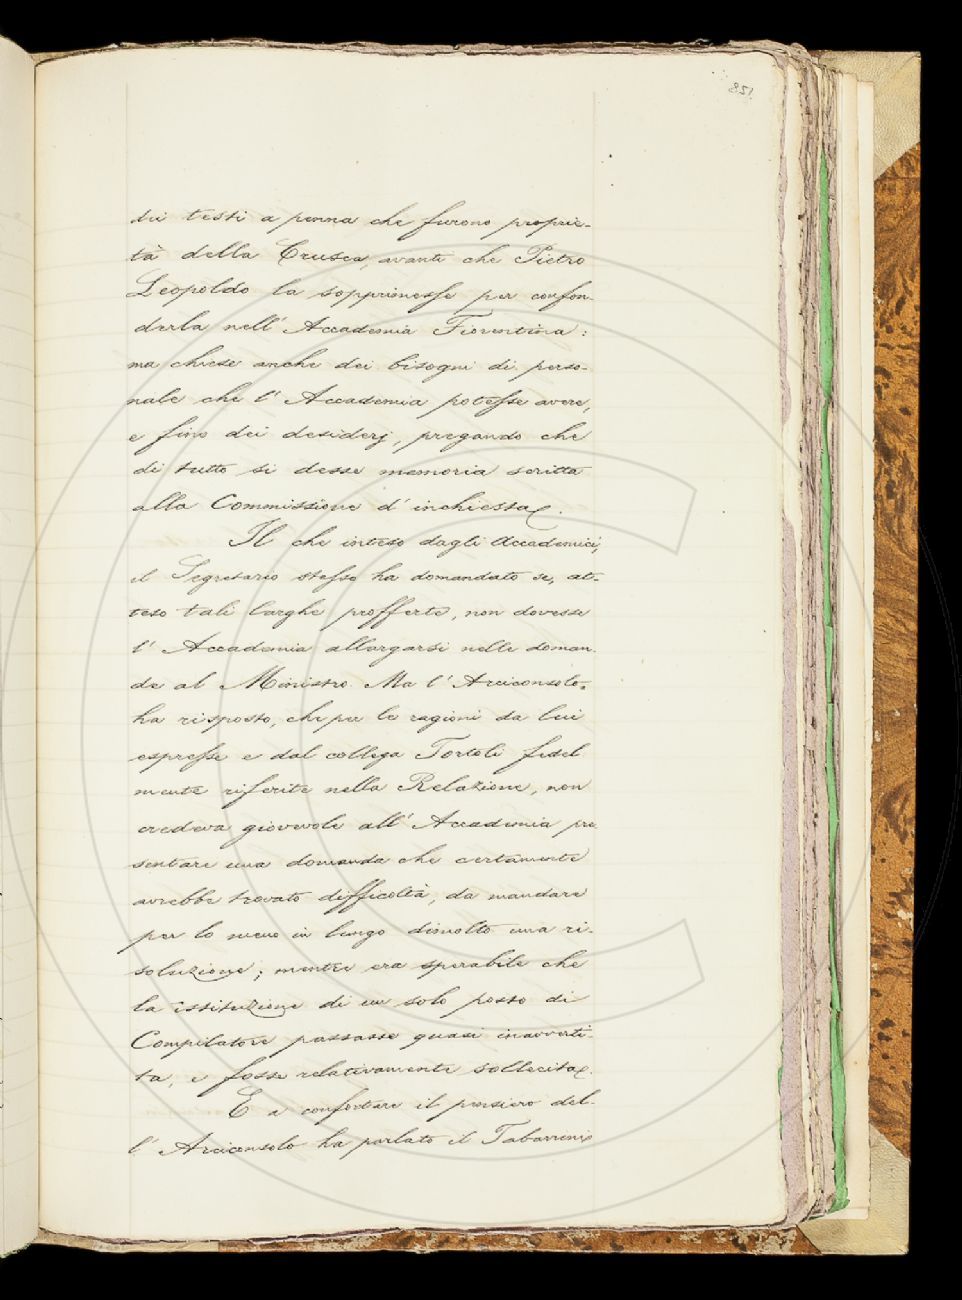 dei testi a penna che furono proprie-
tà della Crusca, avanti che Pietro
Leopoldo la sopprimesse per confon-
derla nell' Accademia Fiorentina:
ma chiese anche dei bisogni di perso-
nale che l' Accademia potesse avere,
e fino dei desiderj, pregando che
di tutto si desse memoria scritta
alla Commissione d' inchiesta.
Il che inteso dagli Accademici,
il Segretario stesso ha domandato se, at-
teso tali larghe profferte, non dovesse
l' Accademia allargarsi nelle doman-
de al Ministro. Ma l' Arciconsolo
ha risposto, che per le ragioni da lui
espresse e dal collega Tortoli fedel
mente riferite nella Relazione, non
credeva giovevole all' Accademia pre
sentare una domanda che certamente
avrebbe trovato difficoltà, da mandare
per lo meno in lungo dimolto una ri-
soluzione; mentre era sperabile che
la istituzione di un solo posto di
Compilatore passasse quasi inavverti-
ta, e fosse relativamente sollecita.
E a confortare il pensiero del-
l' Arciconsolo ha parlato il Tabarrini